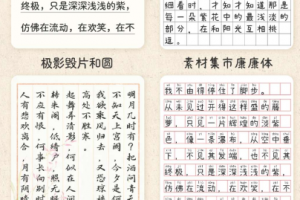 终极,只是深深浅浅的紫,
仿佛在流动,在欢笑,在不
细看时,才知才知道那是
每一朵紫花中的最浅淡的
部分,在和阳光互相
极影毁片和圆
素材集市康康体
明月几时有?把酒问青天
不知天上宫阙,今夕是何
去,又恐琼楼
高处不胜寒
起舞弄清影,何似在人
转朱阁,低绮户,照无
不应有恨,何事长向别时
人有悲欢离合,月有阴晴
我不由得停住了脚步。
从未见过开得这样盛的藤
萝,只见一片辉煌的淡紫
色,像一条瀑布,从空中垂
下,不见其发端,也不见其
终极,只是深深浅浅的紫,
仿佛在流动,在欢笑,在不